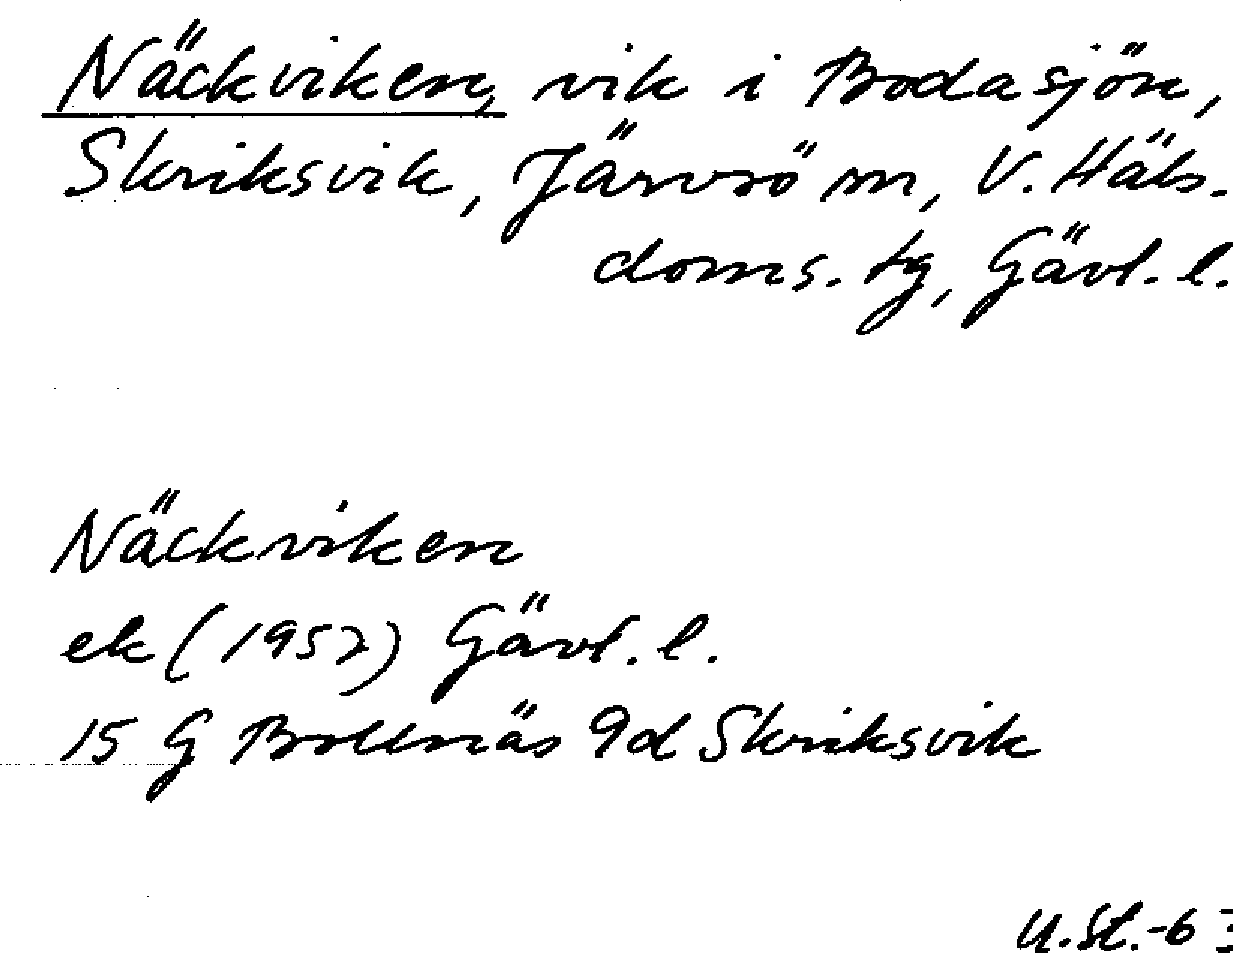 Näckviken, vik i Bodasjön,
Skriksvik, Järvsö sn, V. Häls.
doms. tg, Gävl. l.
Näckviken
ek (1957) Gävl. l.
15 G Bollnäs 9d Skriksvik
U.St.-63